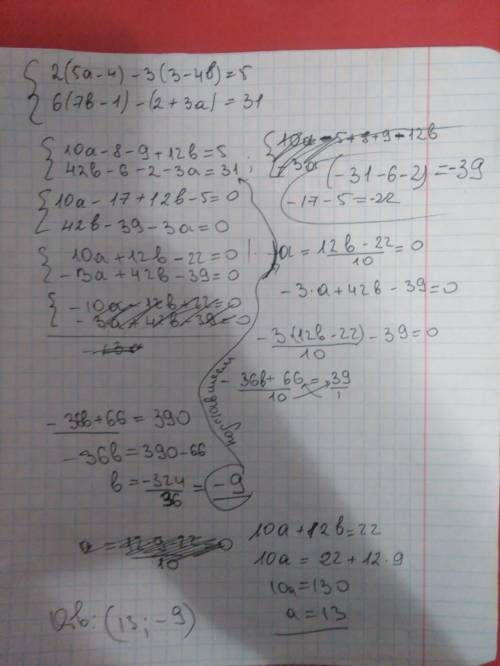 2(5a-4)-3(3-4b)=5
6(7b-1)-(2+3a)=31
10a-8-9+12b=5
42b-6-2-3a=31;
10a-5+8+9-12b
-3a
(-31-6-2)=-39
-17-5=-22
10a-17+12b-5=0
42b-39-3a=0
10a+12b-22=0
-3a+42b-39=0
-10a-12b+22=0
-3a+42b-39=0
-13a
a=12b-22/10=0
-3·a+42b-39=0
-3(12b-22)/10-39=0
-36b+66/10=39/1
подставляем
-36b+66=390
-36b=390-66
b=-324/36=-9
a=12·9-22/10=0
10a+12b=22
10a=22+12·9
10a=130
a=13
Отв: (13;-9)